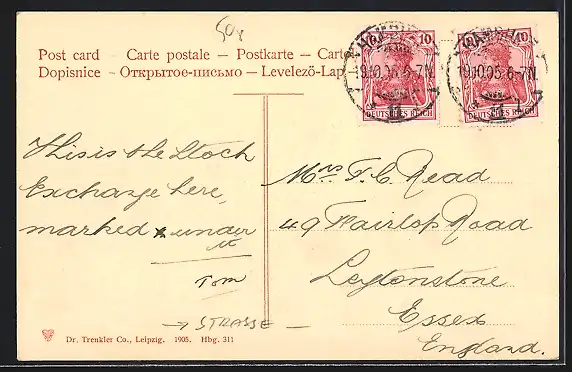 50x
Post card – Carte postale – Postkarte – Carto
Dopisnice – Открытое-письмо – Levelező-Lap
10
DEUTSCHES REICH
10
DEUTSCHES REICH
HAMBURG
19.10.05.6-7N.
HAMBURG
19.10.05.6-7N.
1
This is the Stock
Exchange here,
marked x under
it
Tom
→ STRASSE –
Mrs F. C. Read
49 Fairlop Road
Leytonstone
Essex
England.
Dr. Trenkler Co., Leipzig. 1905. Hbg. 311